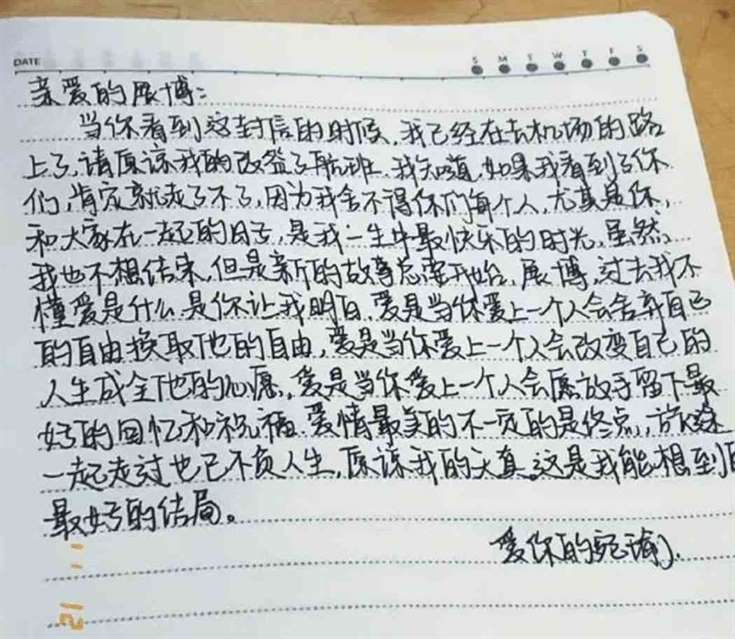 DATE
S M T W T F S
亲爱的展博：
当你看到这封信的时候，我已经在去机场的路
上了，请原谅我的改签了航班，我知道，如果我看到了你
们，肯定就走了不了，因为我舍不得你们每个人，尤其是你，
和大家在一起的日子，是我一生中最快乐的时光，虽然，
我也不想结束，但是新的故事总要开始，展博，过去我不
懂爱是什么，是你让我明白，爱是当你爱上一个人会舍弃自己
的自由换取他的自由，爱是当你爱上一个人会改变自己的
人生成全他的心愿，爱是当你爱上一个人会愿放手留下最
好的回忆和祝福，爱情最美的不一定的是终点，旅途
一起走过也已不负人生，原谅我的天真，这是我能想到的
最好的结局。
爱你的宛瑜
12 11